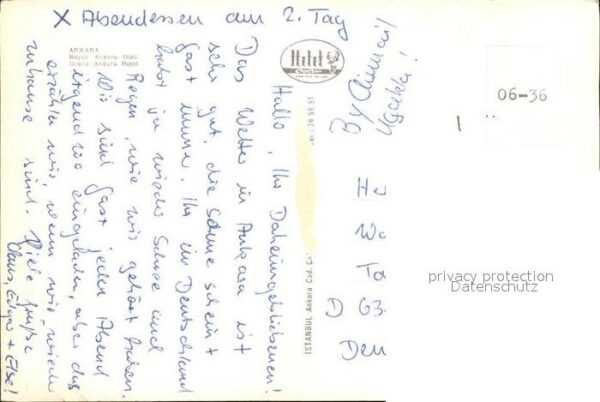 X Abendessen am 2. Tag
ANKARA
Büyük Ankara Oteli
Grand Ankara Hotel
Hallo, Ihr Daheimgebliebenen!
Das Wetter in Ankara ist
sehr gut, die Sonne scheint
fast immer. Ihr in Deutschland
habt ja wieder Schnee und
Regen, wie wir gehört haben.
Wir sind fast jeden Abend
irgendwo eingeladen, aber das
erzählen wir, wenn wir wieder
zuhause sind. Viele Grüße
Claus, Edgar + Else!
Hitit
26 56 81
ISTANBUL Ankara Cad.
By Airmail
Uçakla!
06-36
He
We
To
D 63
Den
privacy protection
Datenschutz